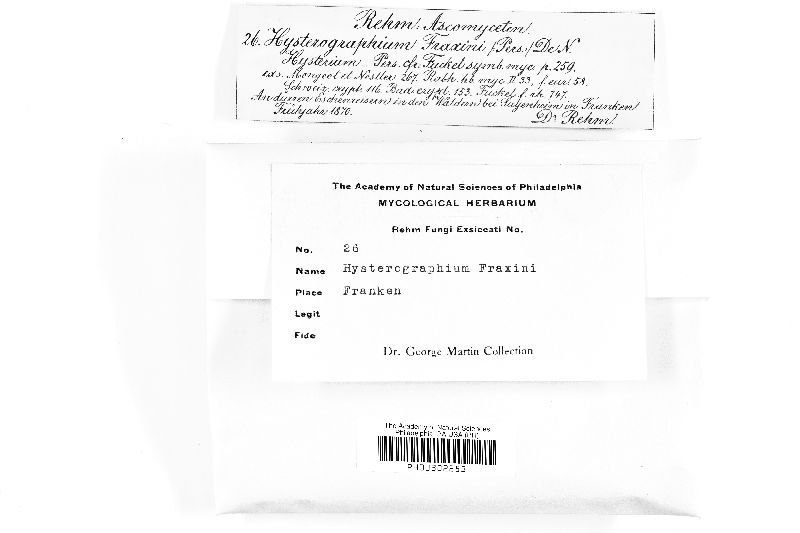 Rehm: Ascomyceten.
26. Hysterographium Fraxini (Pers.) De N.
Hysterium Pers. cfr. Fuckel symb. myc. p. 259.
exs. Mougeot et Nestler 267. Rabh. hb. myc. II 33. f. eur. 58.
Schweiz. crypt. 116. Bad. crypt. 153. Fuckel f. rh. 747.
An dürren Eschenreisern in den Wäldern bei Sugenheim in Franken
Frühjahr 1870.
Dr Rehm.
The Academy of Natural Sciences of Philadelphia
MYCOLOGICAL HERBARIUM
Rehm Fungi Exsiccati No.
No. 26
Name Hysterographium Fraxini
Place Franken
Legit
Fide
Dr. George Martin Collection
The Academy of Natural Sciences
Philadelphia, PA USA (PH)